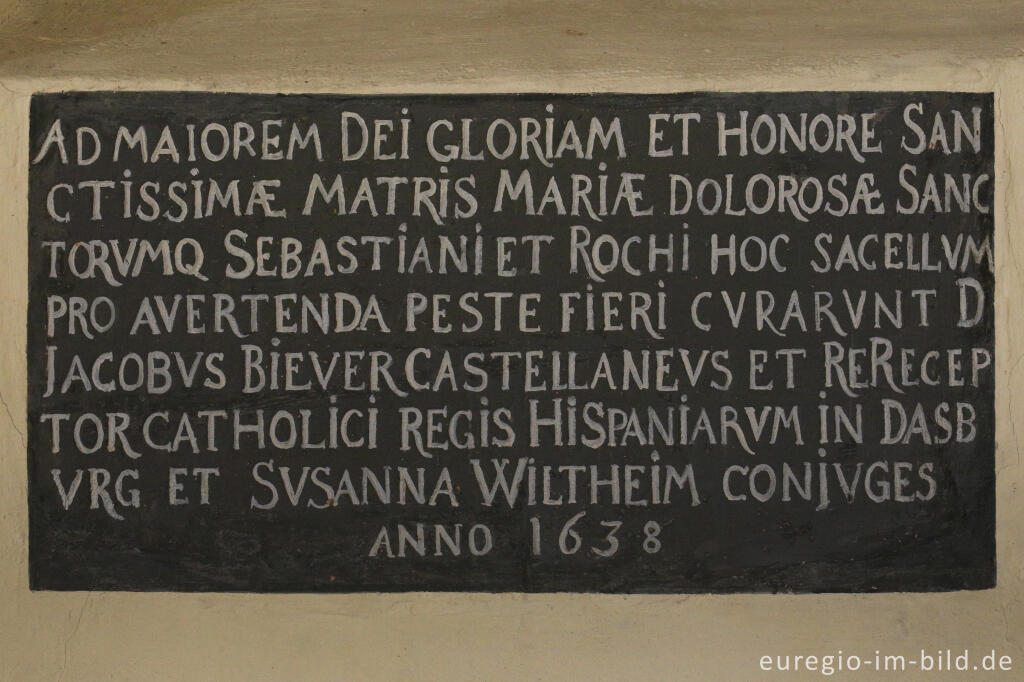 AD MAIOREM DEI GLORIAM ET HONORE SAN
CTISSIMÆ MATRIS MARIÆ DOLOROSÆ SANC
TORVMQ SEBASTIANI ET ROCHI HOC SACELLVM
PRO AVERTENDA PESTE FIERI CVRARVNT D
JACOBVS BIEVER CASTELLANEVS ET RERECEP
TOR CATHOLICI REGIS HISPANIARVM IN DASB
VRG ET SVSANNA WILTHEIM CONJVGES
ANNO 1638
euregio-im-bild.de